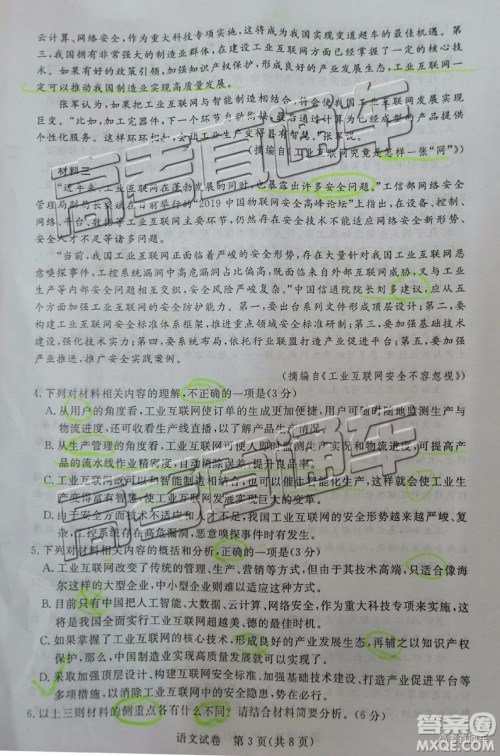 云计算、网络安全，作为重大科技专项实施，这将是我国实现变道超车的最佳机遇。第
三，我国拥有非常强大的制造业群体，在建设工业互联网方面已经掌握了一定的核心技
术。如果有好的政策引领，加强知识产权保护，形成良好的产业发展生态，工业互联网一
定可以推动我国制造业实现高质量发展。
张军认为，如果把工业互联网与智能制造相结合，将会使
实现
巨变。“比如，加工定制零件，下一个环节
已经成型的产品提供
个性化服务。这样环环相
会让工业生产变得真有智慧。”张军说。
（摘编自《工业互联网究竟是怎样一张“网”》）
材料三
“近年来，工业互联网在蓬勃发展的同时，也暴露出许多安全问题。”工信部网络安全
管理局
在日前举行的“2019中国物联网安全高峰论坛”上指出，在设备、控制、
网络、平台、数据等工业互联网主要环节，仍然存在安全技术不能适应网络安全新形势、
安全人才不足等诸多问题。
“当前，我国工业互联网正面临着严峻的安全形势，存在大量针对我国工业互联网恶
意嗅探事件，工控系统漏洞中高危漏洞占比偏高，既面临来自外部互联网威胁，又与工业
生产等内部安全问题相互交织，安全风险严峻复杂。”中国信通院院长刘多建议，应从五
个方面加强工业互联网的安全防护能力。第一，要出台系列文件形成顶层设计；第二，要
构建工业互联网安全保障体系，提升安全态势感知能力；第三，要加强基础技术建设，
强化技术创新；第四，要统筹布局，依托行业联盟打造产业促进平台；第五，要加强
产业推进，推广安全实践案例。
（摘编自《工业互联网安全不容忽视》）
4.下列对材料相关内容的理解，不正确的一项是(3分)
A.从用户的角度看，工业互联网使订单的生成更加便捷，用户可随时随地监测生产与
物流进程，还可收看生产线直播，以了解产品生产情况。
B.从生产管理的角度看，工业互联网可使人即时监测生产实况和物流实况，可提高产
品的流水线作业精密度，自动清除误差，提升工作效率。
C.工业互联网既可以和智能制造相结合，也可以提供个性化生产，这样就会使工业生
产变得具有智慧，使工业互联网发展实现巨大的变革。
D.由于安全技术不适应和人才不足，我国工业互联网的安全形势越来越严峻、复
杂，工控系统存在高危漏洞，恶意嗅探事件时有发生。
5.下列对材料相关内容的概括和分析，正确的一项是(3分)
A.工业互联网改变了传统的管理、生产、营销等方式，但由于其技术高端，只适合像海
尔这样的大型企业，中小型企业则难以适应这种方式。
B.目前只有中国把人工智能、大数据、云计算、网络安全，作为重大科技专项来实施，这
将是我国全面实行工业互联网超越美、德的最佳时机。
C.如果掌握了工业互联网的核心技术，形成良好的产业发展生态，再辅之以知识产权
保护，那么，中国制造业实现高质量发展就有可能成功。
D.采取加强顶层设计、构建安全保障体系、强化基础技术、打造产业促进平台等多种
措施，以消除工业互联网中存在的安全隐患。
6.以上三则材料的侧重点各有什么不同？请结合材料简要分析。(6分)
语文试卷 第3页(共8页)
高考直通车
高考直通车
答案圈